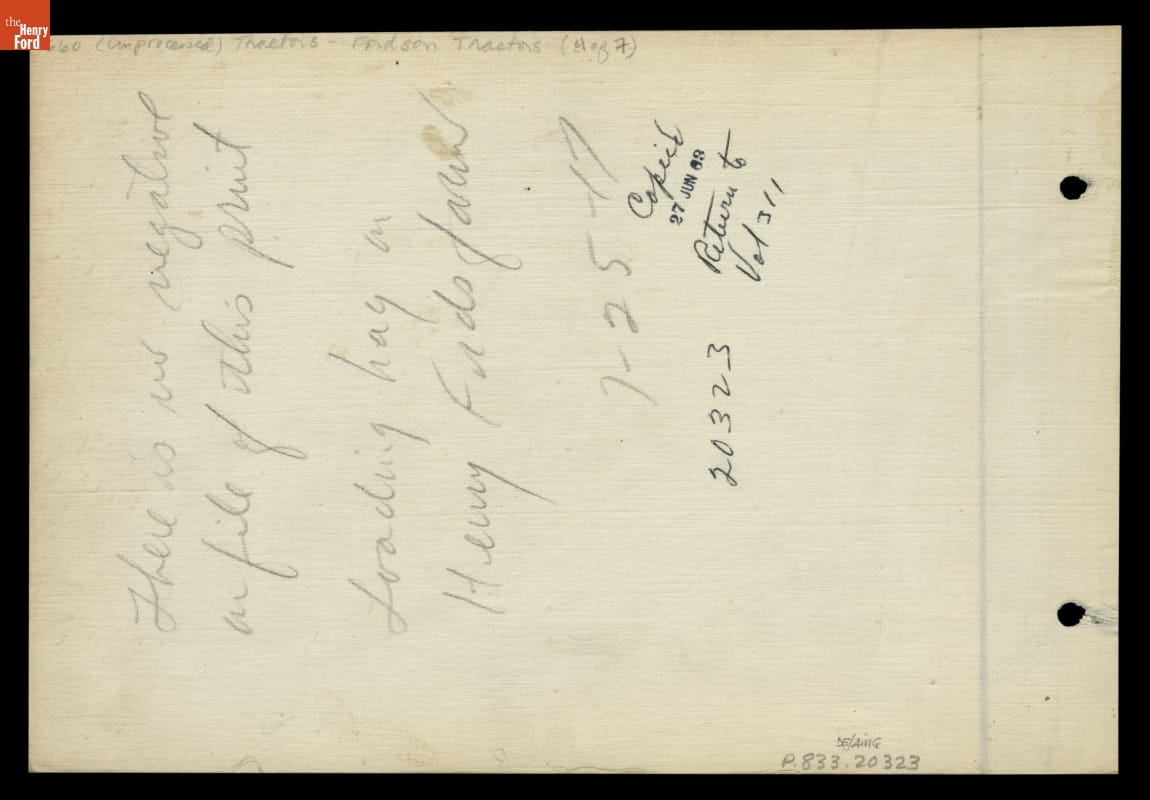 the
Henry
Ford
660 (Unprocessed) Tractors - Fordson Tractors (4 of 7)
There is no negative
on file of this print
Loading hay on
Henry Fords farm
7-25-17
Copied
27 JUN 63
Return to
Vol 311
20323
P.833.20323